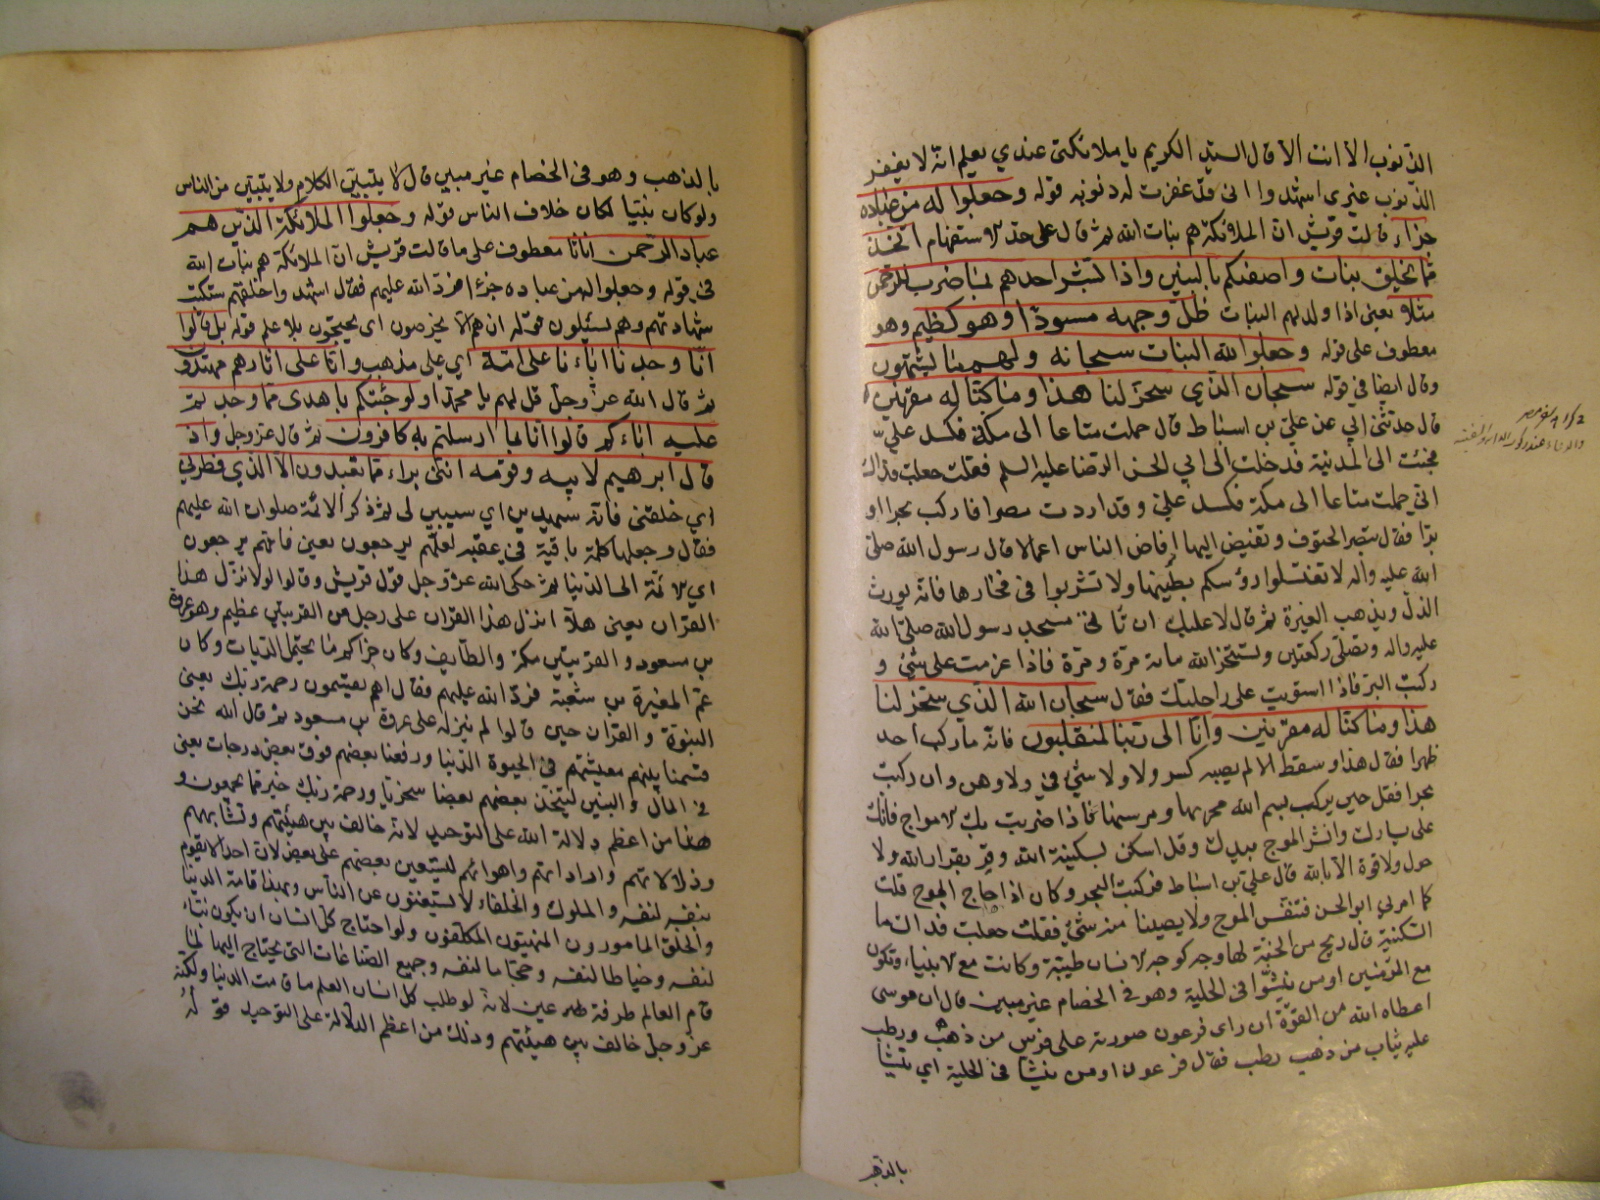 الذنوب الا انت الا قال السيد الكريم يا ملائكتى عندي يعلم انه لا يغفر
الذنوب غيرى اشهدوا انى قد غفرت له ذنوبه قوله وجعلوا له من عباده
جزاء قالت قريش ان الملائكة هم بنات الله ثم قال على حد الاستفهام اتخذ
مما يخلق بنات واصفيكم بالبنين واذا بشر احدهم بما ضرب للرحمن
مثلا يعنى اذا ولد لهم البنات ظل وجهه مسودا وهو كظيم وهو
معطوف على قوله وجعلوا لله البنات سبحانه ولهم ما يشتهون
وقال ايضا في قوله سبحان الذي سخر لنا هذا وما كنا له مقرنين
قال حدثنى ابي عن علي بن اسباط قال حملت متاعا الى مكة فكسد علي
فجئت الى المدينة فدخلت الى ابي الحسن الرضا عليه السلم فقلت جعلت فداك
اني حملت متاعا الى مكة فكسد علي وقد اردت مصر فاركب بحرا او
برا فقال مصر الحتوف وتفيض اليها افاض الناس اعمالا قال رسول الله صلى
الله عليه واله لا تغسلوا رؤسكم بطينها ولا تشربوا في فخارها فانه يورث
الذل ويذهب الغيرة ثم قال لا عليك ان تأتى مسجد رسول الله صلى الله
عليه واله وتصلى ركعتين وتستخير الله مائة مرة ومرة فاذا عزمت على شئ و
ركبت البر فاذا استويت على راحلتك فقال سبحان الله الذي سخر لنا
هذا وما كنا له مقرنين وانا الى ربنا لمنقلبون فانه ما ركب احد
ظهرا فقال هذا وسقط الا لم يصبه كسر ولا ولا شئ في ولا وهن وان ركبت
بحرا فقل حين يركب بسم الله مجريها ومرسيها فاذا ضربت بك الامواج فاتك
على يسارك وانشر الموج بيدك وقل اسكن بسكينة الله وقر بقرار الله ولا
حول ولا قوة الا بالله قال علي بن اسباط فركبت البحر وكان اذا هاج الموج قلت
كما امرني ابو الحسن فتنفس الموج ولا يصيبنا منه شئ فقلت جعلت فداك ما
السكنية قال ريح من الجنة لها وجه كوجه الانسان طيبة وكانت مع الانبياء وتكون
مع المؤمنين او من ينشؤا في الحلية وهو في الخصام غير مبين قال ان موسى
اعطاه الله من القوة ان راى فرعون صورته على فرس من ذهب ورطب
عليه ثياب من ذهب رطب فقال فرعون او من ينشا في الحلية اي ينشا
بالذهب
بالذهب وهو في الخصام غير مبين قال لا يتبين الكلام ولا يتبين من الناس
ولو كان نبيا لكان خلاف الناس قوله وجعلوا الملائكة الذين هم
عباد الرحمن اناثا معطوف على ما قالت قريش ان الملائكة هم بنات الله
في قوله وجعلوا له من عباده جزءا فرد الله عليهم فقال اشهدوا خلقهم ستكتب
شهادتهم وهم يسئلون قوله ان هم الا يخرصون اى يحتجون بلا علم قوله بل قالوا
انا وجدنا اباءنا على امة اي على مذهب وانا على اثارهم مهتدون
ثم قال الله عز وجل قل لهم يا محمد اولو جئتكم باهدى مما وجدتم
عليه اباءكم قالوا انا بما ارسلتم به كافرون ثم قال عز وجل واذ
قال ابرهيم لابيه وقومه اننى براء مما تعبدون الا الذي فطرني
اي خلقنى فانه سيهدين اي سيبين لى ثم ذكر الائمة صلوات الله عليهم
فقال وجعلها كلمة باقية في عقبه لعلهم يرجعون يعنى فانهم يرجعون
اي الائمة الى الدنيا ثم حكى الله عز وجل قول قريش وقالوا لولا نزل هذا
القران يعنى هلا انزل هذا القران على رجل من القريتين عظيم وهو عروة
بن مسعود والقريتين مكة والطايف وكان جزاكم ما يحتمل الديات وكان
عم المغيرة بن شعبة فرد الله عليهم فقال اهم يقسمون رحمة ربك يعنى
النبوة والقران حين قالوا لم ينزله على عروة بن مسعود ثم قال الله نحن
قسمنا بينهم معيشتهم في الحيوة الدنيا ورفعنا بعضهم فوق بعض درجات يعنى
في المال والبنين ليتخذ بعضهم بعضا سخريا ورحمة ربك خير مما يجمعون و
هذا من اعظم دلالة الله على التوحيد لانه خالف بين هيئتهم وتشابههم
ودلالاتهم وارادتهم واهوائهم ليستعين بعضهم على بعض لان احدا لا يقوم
بنفسه لنفسه والملوك والخلفاء لا يستغنون عن الناس وبهذا قامة الدنيا
والخلق المامورون المنهيون المكلفون ولو احتاج كل انسان ان يكون بناء
لنفسه وخياطا لنفسه وحجاما لنفسه وجميع الصناعات التي يحتاج اليها لما
قام العالم طرفة عين لانه لو طلب كل انسان العلم ما قامت الدنيا ولكنه
عز وجل خالف بين هيئتهم وذلك من اعظم الدلالة على التوحيد قوله